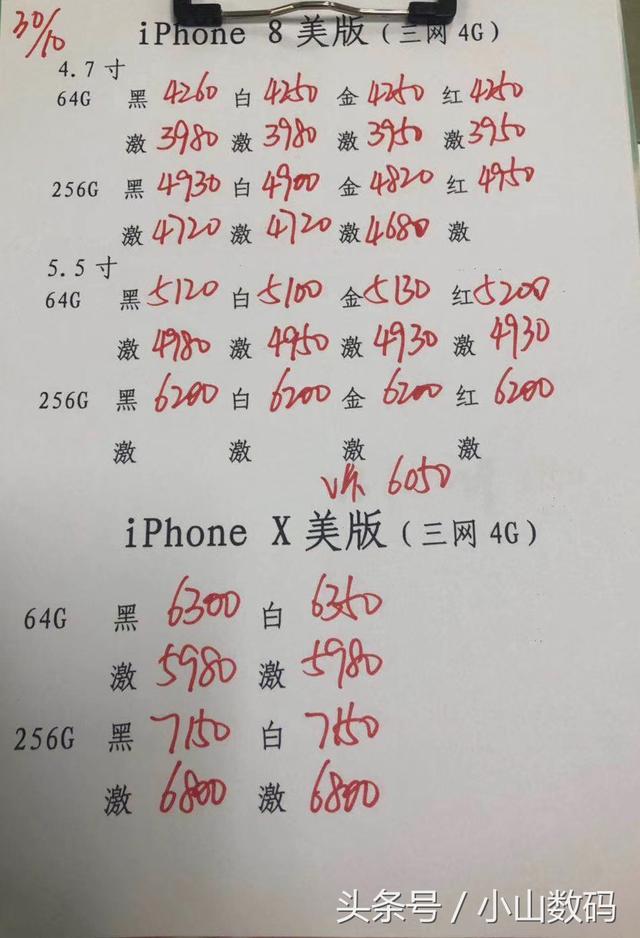 30/10
iPhone 8美版(三网4G)
4.7寸
64G 黑 4260 白 4250 金 4250 红 4250
激 3980 激 3980 激 3950 激 3950
256G 黑 4930 白 4900 金 4820 红 4950
激 4720 激 4720 激 4680 激
5.5寸
64G 黑 5120 白 5100 金 5130 红 5200
激 4980 激 4950 激 4930 激 4930
256G 黑 6200 白 6200 金 6200 红 6200
激 激 激 激
6050
iPhone X美版(三网4G)
64G 黑 6300 白 6350
激 5980 激 5980
256G 黑 7150 白 7150
激 6800 激 6800
头条号 / 小山数码